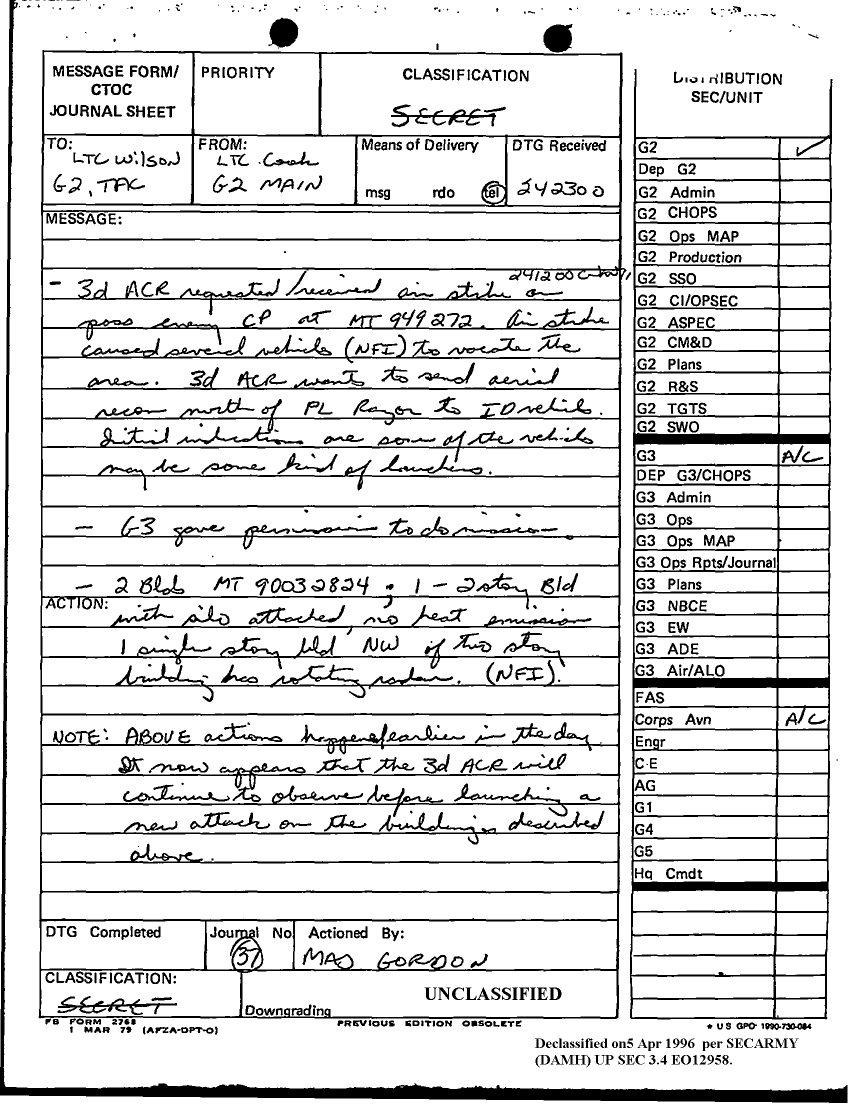 MESSAGE FORM/
CTOC
JOURNAL SHEET
PRIORITY
CLASSIFICATION
SECRET
TO:
LTC Wilson
G2, TAC
FROM:
LTC Cook
G2 MAIN
Means of Delivery
msg rdo tel
DTG Received
242300
MESSAGE:
241200
- 3d ACR requested/received air strike on
poss enemy CP at MT 949272. Air strike
caused several vehicles (NFI) to vacate the
area. 3d ACR wants to send aerial
recon north of PL Razor to ID vehicles.
Initial indications are some of the vehicles
may be some kind of launchers.
- G3 gave permission to do mission.
- 2 Blds MT 90032824; 1 - 2 story Bld
ACTION:
with silo attached, no heat emission
1 single story bld NW of two story
building has rotating radar. (NFI).
NOTE: ABOVE actions happened earlier in the day.
It now appears that the 3d ACR will
continue to observe before launching a
new attack on the buildings described
above.
DTG Completed
Journal No
37
Actioned By:
MAJ GORDON
CLASSIFICATION:
SECRET
Downgrading
UNCLASSIFIED
FB FORM 2768
1 MAR 79 (AFZA-DPT-O)
PREVIOUS EDITION OBSOLETE
DISTRIBUTION
SEC/UNIT
G2 ✓
Dep G2
G2 Admin
G2 CHOPS
G2 Ops MAP
G2 Production
G2 SSO
G2 CI/OPSEC
G2 ASPEC
G2 CM&D
G2 Plans
G2 R&S
G2 TGTS
G2 SWO
G3 A/C
DEP G3/CHOPS
G3 Admin
G3 Ops
G3 Ops MAP
G3 Ops Rpts/Journal
G3 Plans
G3 NBCE
G3 EW
G3 ADE
G3 Air/ALO
FAS
Corps Avn A/C
Engr
C-E
AG
G1
G4
G5
Hq Cmdt
* U S GPO 1990-730-084
Declassified on5 Apr 1996 per SECARMY
(DAMH) UP SEC 3.4 EO12958.